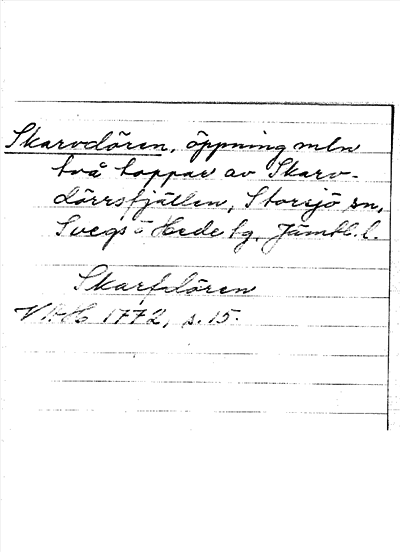 Skarvdören, öppning mln
två toppar av Skarv-
dörrsfjällen, Storsjö sn,
Svegs o Hede tg, Jämtl. l.
Skarfdören
1772, s. 15.